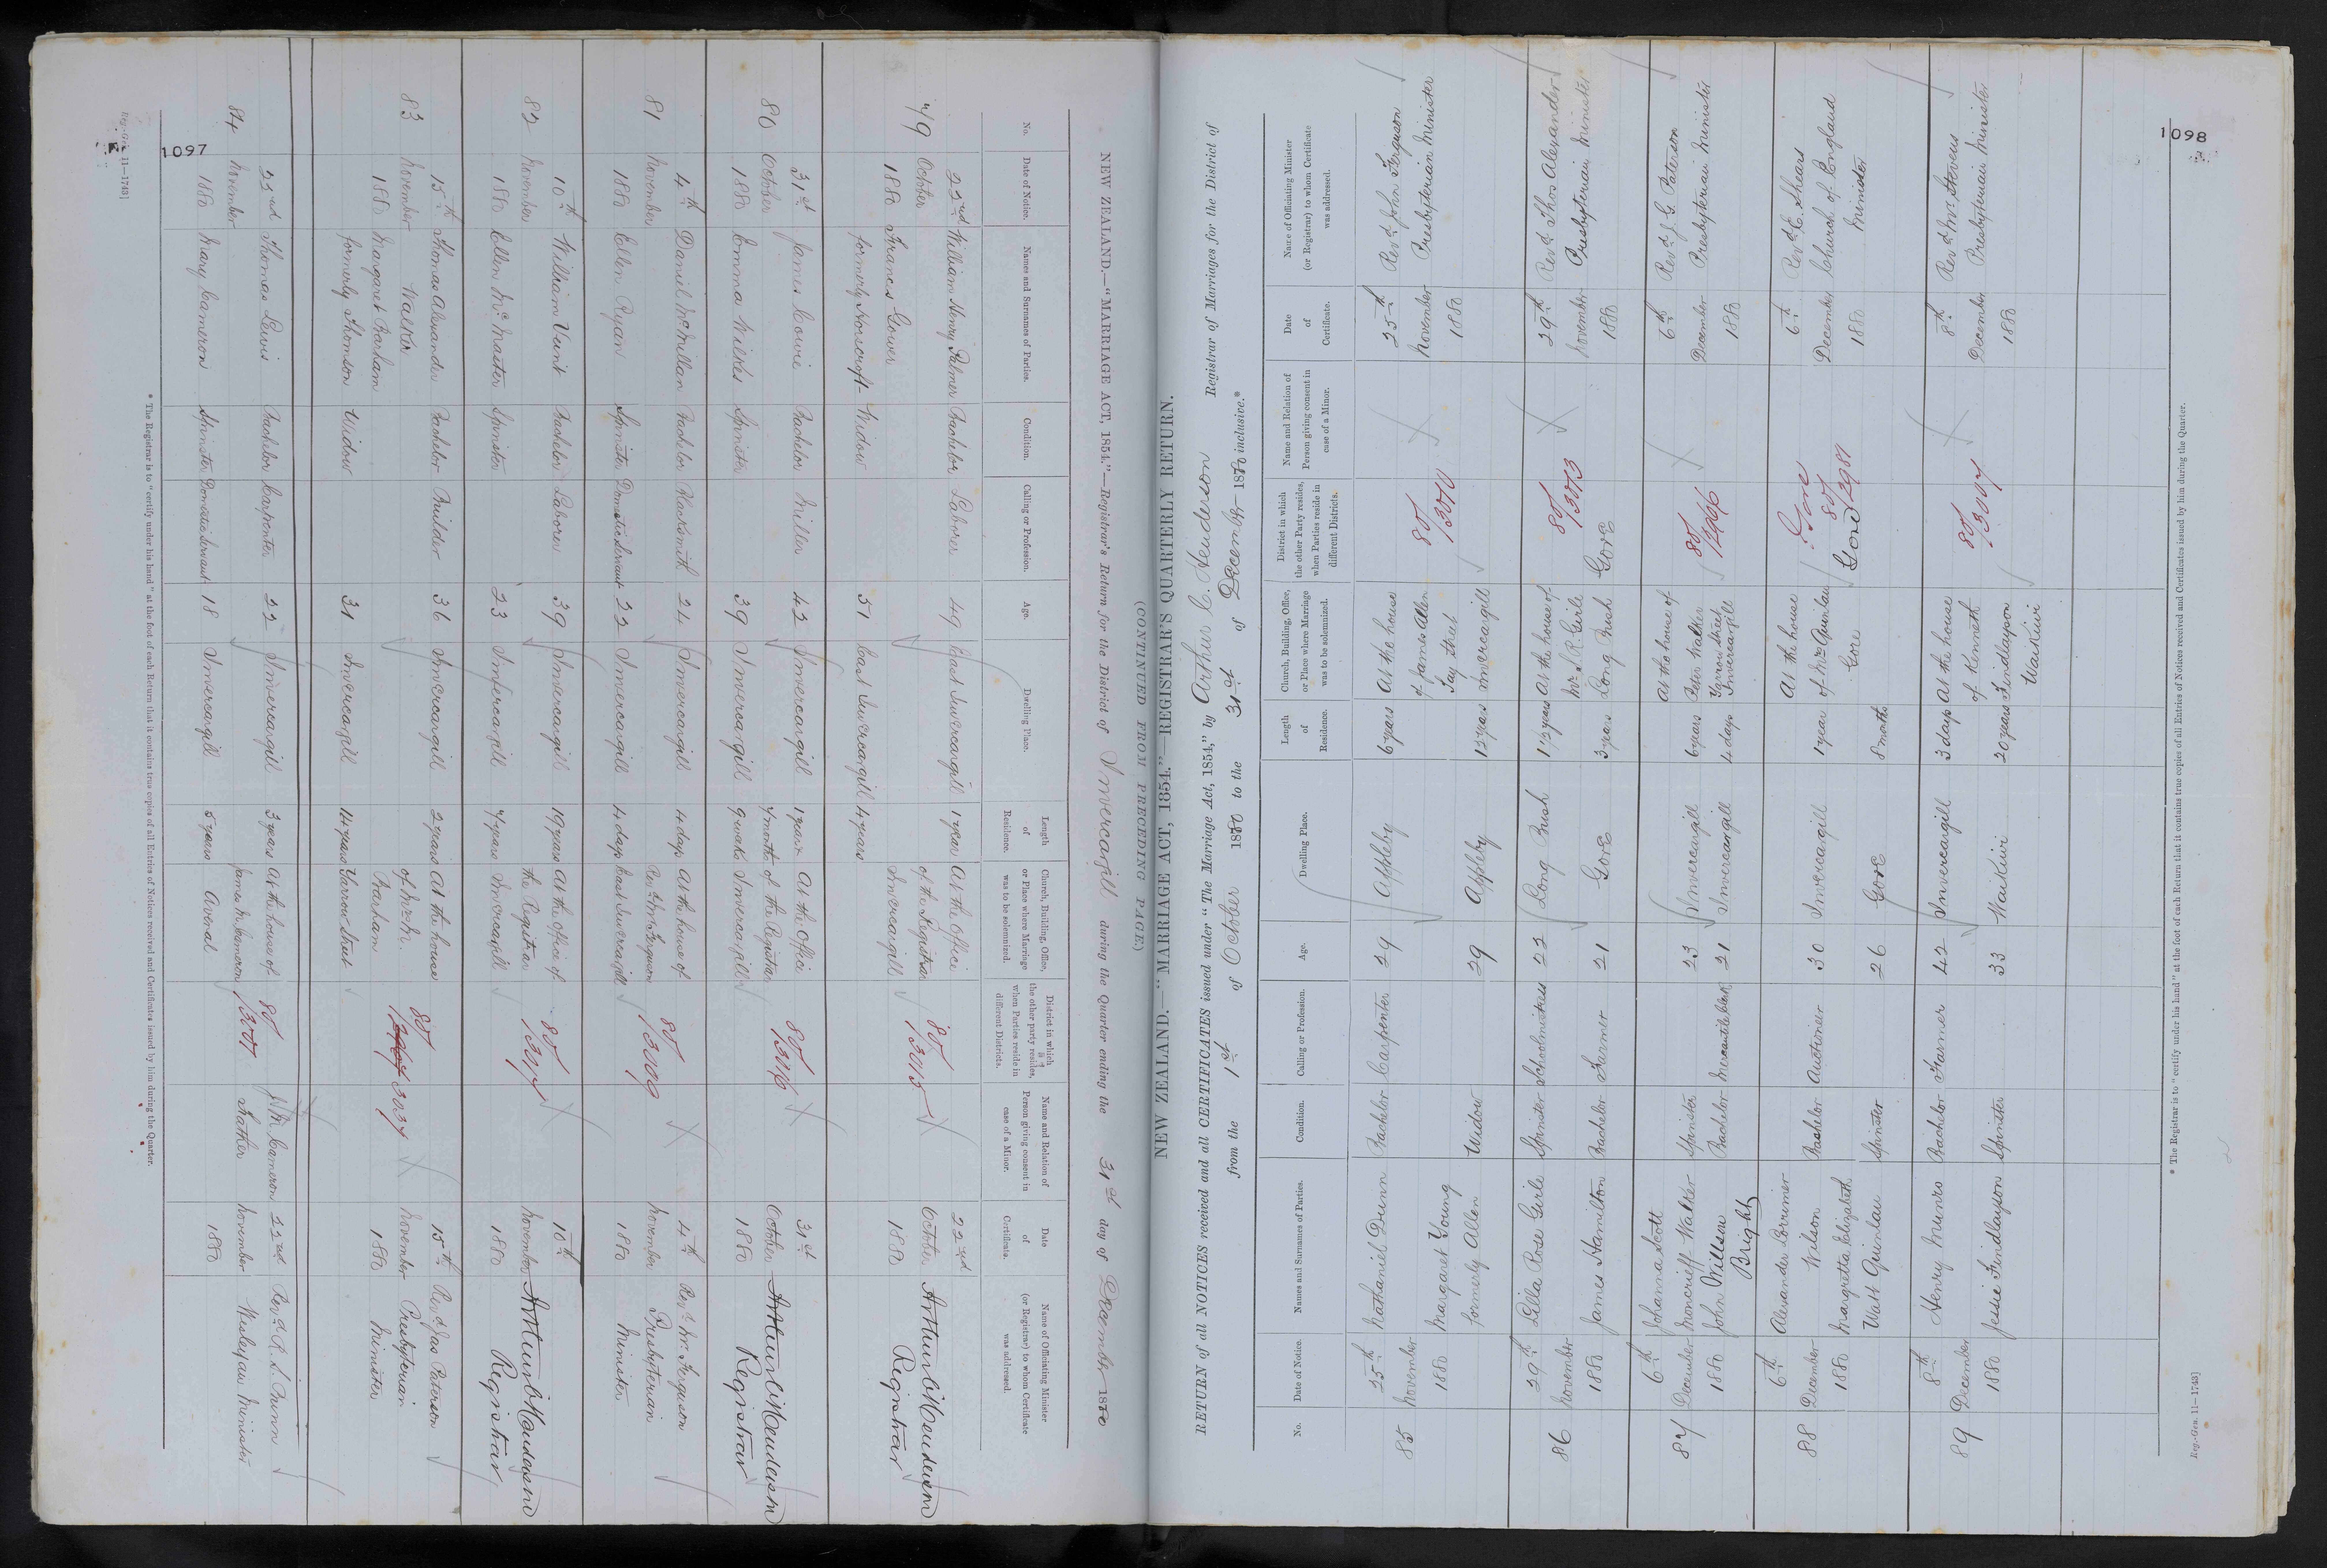 1097
NEW ZEALAND.—"MARRIAGE ACT, 1854."—Registrar's Return for the District of Invercargill during the Quarter ending the 31st day of December 1880
No.
Date of Notice.
Names and Surnames of Parties.
Condition.
Calling or Profession.
Age.
Dwelling Place.
Length of Residence.
Church, Building, Office, or Place where Marriage was to be solemnized.
District in which the other party resides, when Parties reside in different Districts.
Name and Relation of Person giving consent in case of a Minor.
Date of Certificate.
Name of Officiating Minister (or Registrar) to whom Certificate was addressed.
79 October 22nd 1880
William Henry Palmer Bachelor Laborer 49 East Invercargill 1 year
Frances Gower formerly Horscroft Widow 51 East Invercargill 4 years
At the Office of the Registrar Invercargill
80/3015
22nd October 1880
Registrar
80 October 31st 1880
James Cowie Bachelor Miller 42 Invercargill 1 year 7 months
Emma Wilkes Spinster 39 Invercargill 9 weeks
At the Office of the Registrar Invercargill
80/3016
31st October 1880
Registrar
81 November 4th 1880
Daniel McMillan Bachelor Blacksmith 24 Invercargill 4 days
Ellen Ryan Spinster Domestic Servant 22 Invercargill 4 days
At the house of Revd Mr Ferguson East Invercargill
80/3009
4th November 1880
Revd Mr Ferguson Presbyterian Minister
82 November 10th 1880
William Vint Bachelor Laborer 39 Invercargill 19 years
Ellen McMaster Spinster 23 Invercargill 7 years
At the Office of the Registrar Invercargill
80/3017
10th November 1880
Registrar
83 November 15th 1880
Thomas Alexander Walker Bachelor Builder 36 Invercargill 2 years
Margaret Barham formerly Thomson Widow 31 Invercargill 14 years
At the house of Mrs M. Barham Yarrow Street
80/ 3034
15th November 1880
Revd Jas Paterson Presbyterian Minister
84 November 22nd 1880
Thomas Lewis Bachelor Carpenter 22 Invercargill 3 years
Mary Cameron Spinster Domestic Servant 18 Invercargill 5 years
At the house of James McCameron Avenal
80/3011
Cameron Father
22nd November 1880
Revd R. S. Bunn Wesleyan Minister
* The Registrar is to "certify under his hand" at the foot of each Return that it contains true copies of all Entries of Notices received and Certificates issued by him during the Quarter.
Reg.-Gen. 11—1743]
(CONTINUED FROM PRECEDING PAGE)
1098
NEW ZEALAND.—"MARRIAGE ACT, 1854."—REGISTRAR'S QUARTERLY RETURN.
RETURN of all NOTICES received and all CERTIFICATES issued under "The Marriage Act, 1854," by Arthur C. Henderson Registrar of Marriages for the District of
from the 1st of October 1880 to the 31st of December 1880 inclusive.*
No.
Date of Notice.
Names and Surnames of Parties.
Condition.
Calling or Profession.
Age.
Dwelling Place.
Length of Residence.
Church, Building, Office, or Place where Marriage was to be solemnized.
District in which the other Party resides, when Parties reside in different Districts.
Name and Relation of Person giving consent in case of a Minor.
Date of Certificate.
Name of Officiating Minister (or Registrar) to whom Certificate was addressed.
85 25th November 1880
Nathaniel Dunn Bachelor Carpenter 29 Appleby 6 years
Margaret Young formerly Allen Widow 29 Appleby 12 years
At the house of James Allen Tay Street Invercargill
80/3010
25th November 1880
Revd John Ferguson Presbyterian Minister
86 29th November 1880
Lilla Rose Girle Spinster Schoolmistress 22 Long Bush 1 1/2 years
James Hamilton Bachelor Farmer 21 Gore 3 years
At the house of Mr S. R. Girle Long Bush
80/3013
Gore
29th November 1880
Revd Thos Alexander Presbyterian Minister
87 6th December 1880
Johanna Scott Moncrieff Walker Spinster 23 Invercargill 6 years
John Willson Bright Bachelor Mercantile Clerk 21 Invercargill 4 days
At the house of Peter Walker Yarrow Street Invercargill
80/1266
6th December 1880
Revd J. G. Paterson Presbyterian Minister
88 6th December 1880
Alexander Lorrimer Wilson Bachelor Auctioneer 30 Invercargill 1 year
Margretta Elizabeth Watt Quinlan Spinster 26 Gore 8 months
At the house of Mrs Quinlan Gore
? Gore
80/2981
Gore
6th December 1880
Revd E. Shears Church of England Minister
89 8th December 1880
Henry Munro Bachelor Farmer 42 Invercargill 3 days
Jessie Findlayson Spinster 33 Waikiwi 20 years
At the house of Kenneth Findlayson Waikiwi
80/3007
8th December 1880
Revd Mr Stevens Presbyterian Minister
* The Registrar is to "certify under his hand" at the foot of each Return that it contains true copies of all Entries of Notices received and Certificates issued by him during the Quarter.
Reg.-Gen. 11—1743]